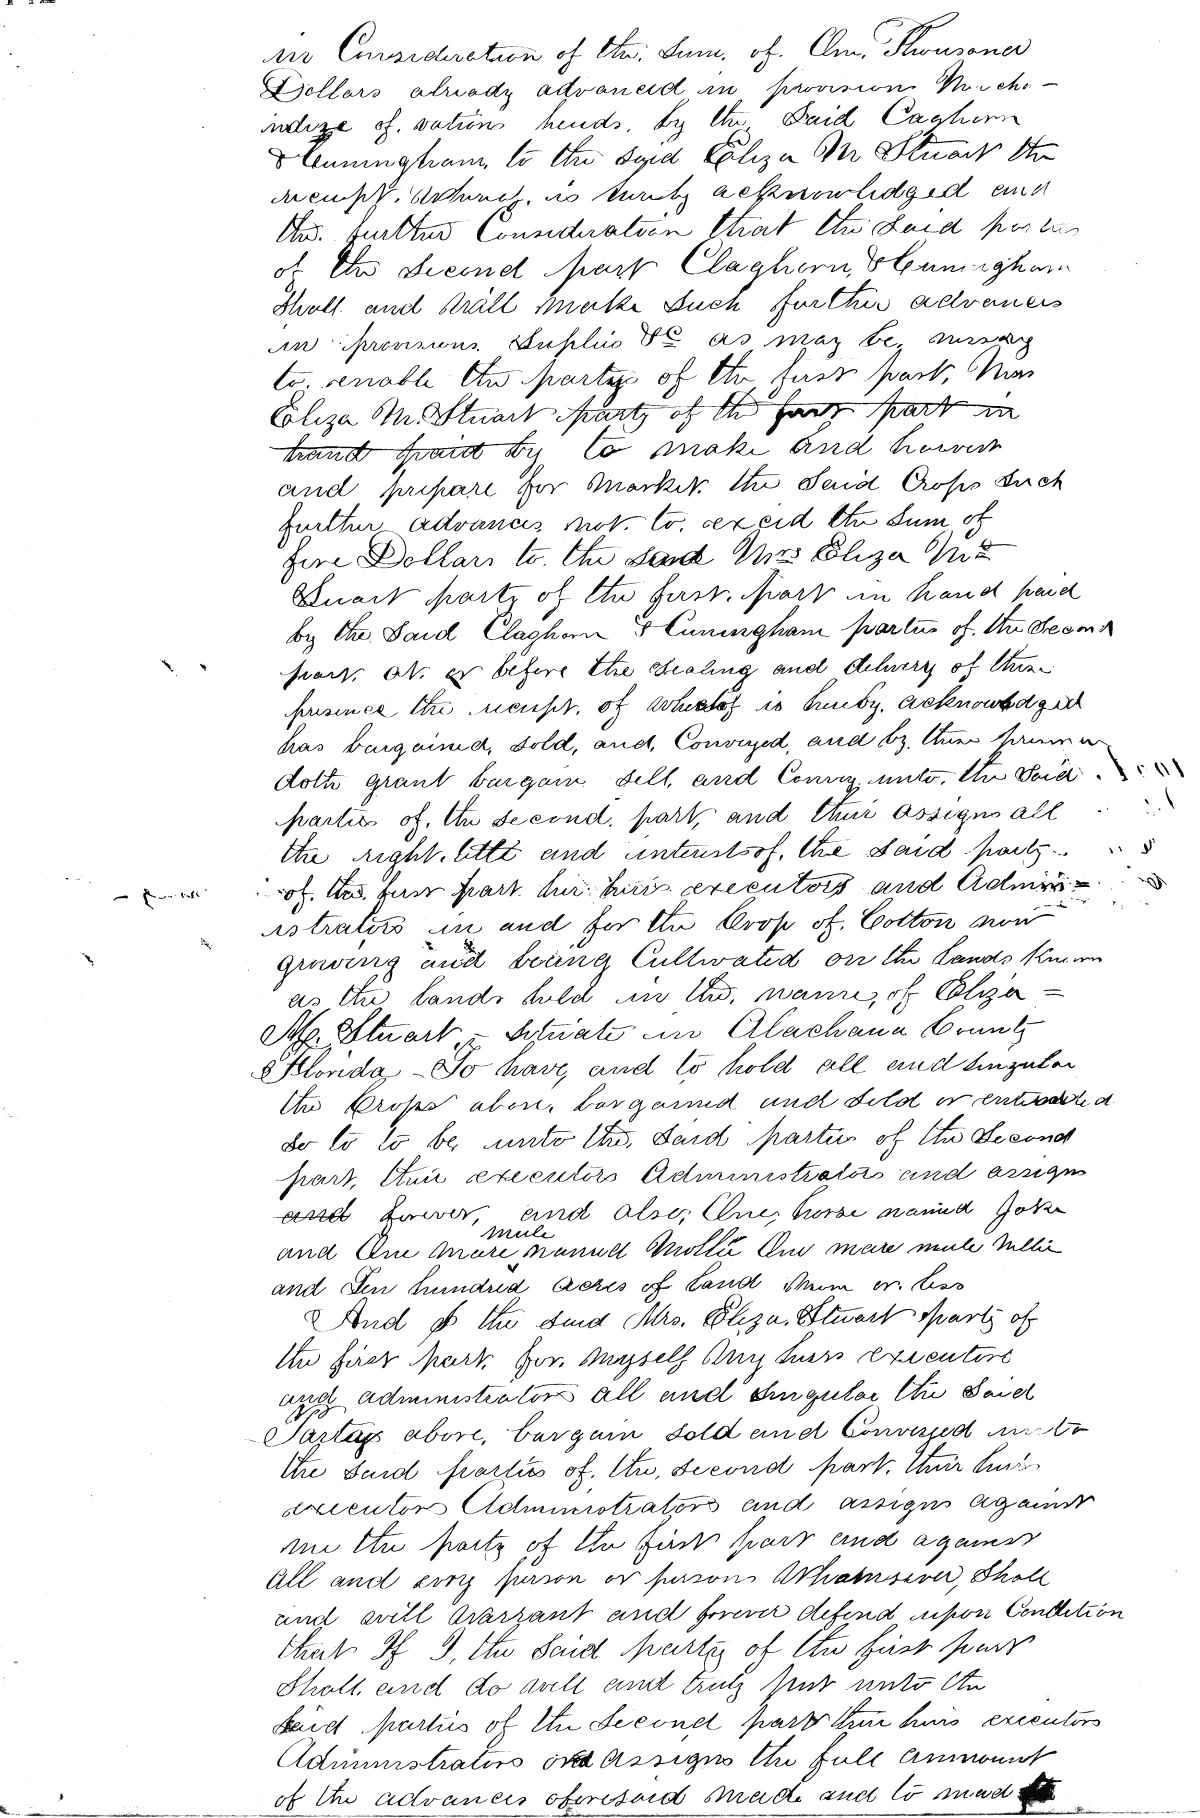 in Consideration of the Sum of One Thousand
Dollars already advanced in provision Mercha-
ndize of vations heuds by the Said Caghorn
& Cuningham to the said Eliza M Stuart the
receipt which is hereby acknowledged and
the further Consideration that the Said parties
of the Second part Claghorn & Cuningham
Shall and Will make Such further advances
in provisions Suplies &c as may be nessary
to enable the partys of the first part, Mrs
Eliza M. Stuart party of the first part in
hand paid by to make and harvest
and prepare for Market the Said Crops Such
further advances not to exceid the Sum of
five Dollars to the said Mrs Eliza M
Stuart party of the first part in hand paid
by the Said Claghorn & Cuningham parties of the Second
part, at or before the Sealing and delivery of these
presence the receipt of whereof is hereby acknowledged
has bargained, Sold, and, Conveyed, and by these presence
doth grant bargain Sell, and Convey unto the Said
parties of the Second part, and their assigns all
the right, title and interests of the Said party
of the first part her heirs executors and Admin=
istrators in and for the Crop of Cotton now
growing and being Cultivated on the Lands Known
as the Lands held in the name of Eliza =
M. Stuart - Situate in Alachaua County
Florida - To have and to hold all and Singular
the Crops above bargained and Sold or entended
so to to be unto the Said parties of the Second
part, their executors Administrators and assigns
and forever, and also, One, horse named Joke
and One mare mule named Mollie One mare mule Nellie
and Ten hundred acres of Land More or less
And I the Said Mrs. Eliza Stuart party of
the first part for myself my heirs executors
and administrators all and Singular the Said
Partays above, bargain Sold and Conveyed unto
the Said parties of the Second part, their heirs
executors Administrators and assigns against
me the party of the first part and against
all and evry person or persons Whamsoever, Shall
and will Warrant and forever defend upon Condition
that If I, the Said party of the first part
Shall and do well and truly pur unto the
Said parties of the Second part their heirs executors
Administrators and assigns the full ammount
of the advances oforesaid made and to mad